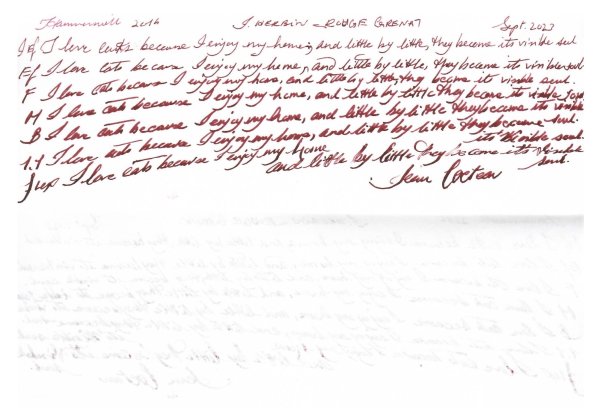 Hammermill 2016 J. HERBIN - ROUGE GRENAT Sept. 2023
EF I love cats because I enjoy my home, and little by little, they become its visible soul
EF I love cats because I enjoy my home, and little by little, they become its visible soul
F I love cats because I enjoy my home, and little by little, they become its visible soul.
M I love cats because I enjoy my home, and little by little they become its visible soul
B I love cats because I enjoy my home, and little by little they become its visible soul.
1.1 I love cats because I enjoy my home, and little by little they become its visible soul.
I love cats because I enjoy my home and little by little they become its visible soul.
Jean Cocteau